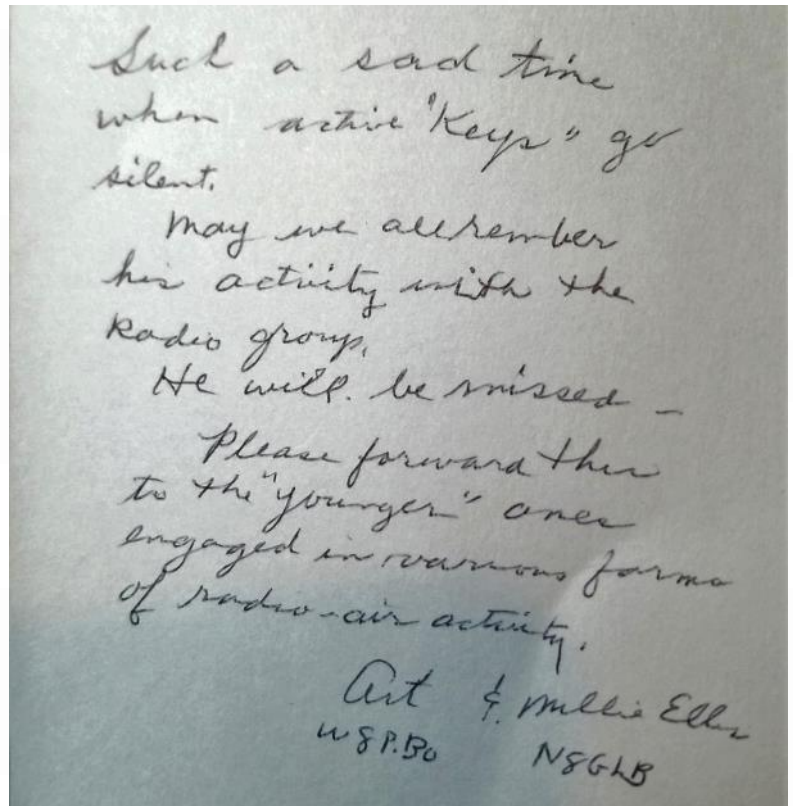 Such a sad time
when active "Keys" go
silent.
May we all rember
his activity with the
Radio group.
He will be missed -
Please forward this
to the "younger" ones
engaged in various forms
of radio-air activity.
Art & Millie Ellis
W8P.BO N8GLB